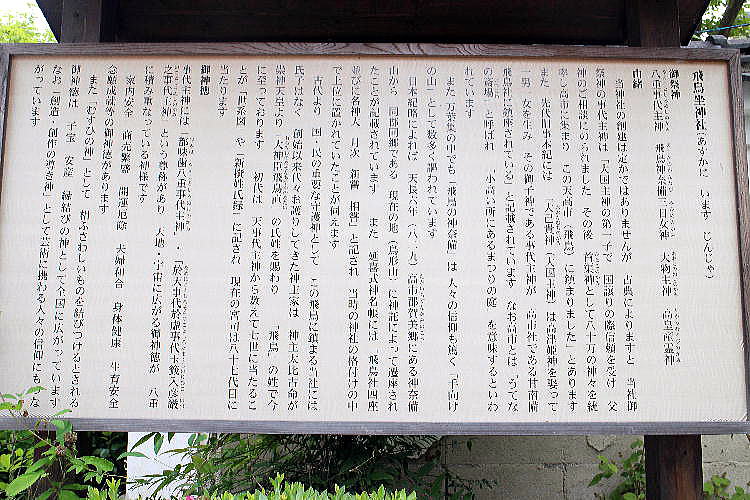 飛鳥坐神社（あすかに います じんじゃ）
御祭神
八重事代主神 飛鳥神奈備三日女神 大物主神 高皇産霊神
由緒
当神社の創建は定かではありませんが 古典によりますと 当社御
祭神の事代主神は「大国主神の第一子で 国譲りの際信頼を受け 父
神のご相談にのられました その後 首渠神として八十万の神々を統
率し高市に集まり この天高市（飛鳥）に鎮まりました」とあります
また 先代旧事本紀には「大己貴神（大国主神）は高津姫神を娶って
一男一女を生み その御子神である事代主神が 高市社である甘南備
飛鳥社に鎮座されている」と記載されています なお高市とは「うてな
の斎場」と呼ばれ 小高い所にあるまつりの庭 を意味するといわ
れています
また 万葉集の中でも「飛鳥の神奈備」は 人々の信仰も篤く「手向け
の山」として数多く謳われています
日本紀略によれば 天長六年（八二九）高市郡賀美郷にある神奈備
山から 同郡同郷である 現在の地（鳥形山）に神託によって遷座され
たことが記載されています また 延喜式神名帳には 飛鳥社四座
並びに名神大 月次 新嘗 相嘗 と記され 当時の神社の格付けの中
で上位に置かれていたことが伺えます
古代より 国・民の重要な守護神として この飛鳥に鎮まる当社には
氏子はなく 創始以来代々お護りしてきた神主家は 神主太比古命が
崇神天皇より「大神臣飛鳥直」の氏姓を賜わり 「飛鳥」の姓で今
に至っております 初代は 天事代主神から数えて七世に当たるこ
とが「世系図」や「新撰姓氏録」に記され 現在の宮司は八十七代目に
当たります
御神徳
事代主神には「都味歯八重事代主神」・「於天事代於虚事代玉籖入彦厳
之事代主神」という尊称があり 天地・宇宙に広がる御神徳が 八重
に積み重なっている神様です
家内安全 商売繁盛 開運厄除 夫婦和合 身体健康 生育安全
念願成就等の御神徳があります
また「むすひの神」として 相ふさわしいものを結びつけるとされる
御神徳は 子宝 安産 縁結びの神として全国に広がっています
なお 創造・創作の導き神 として芸術に携わる人々の信仰にもつな
がっています